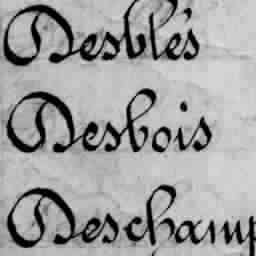 Desblés
Desbois
Deschamp